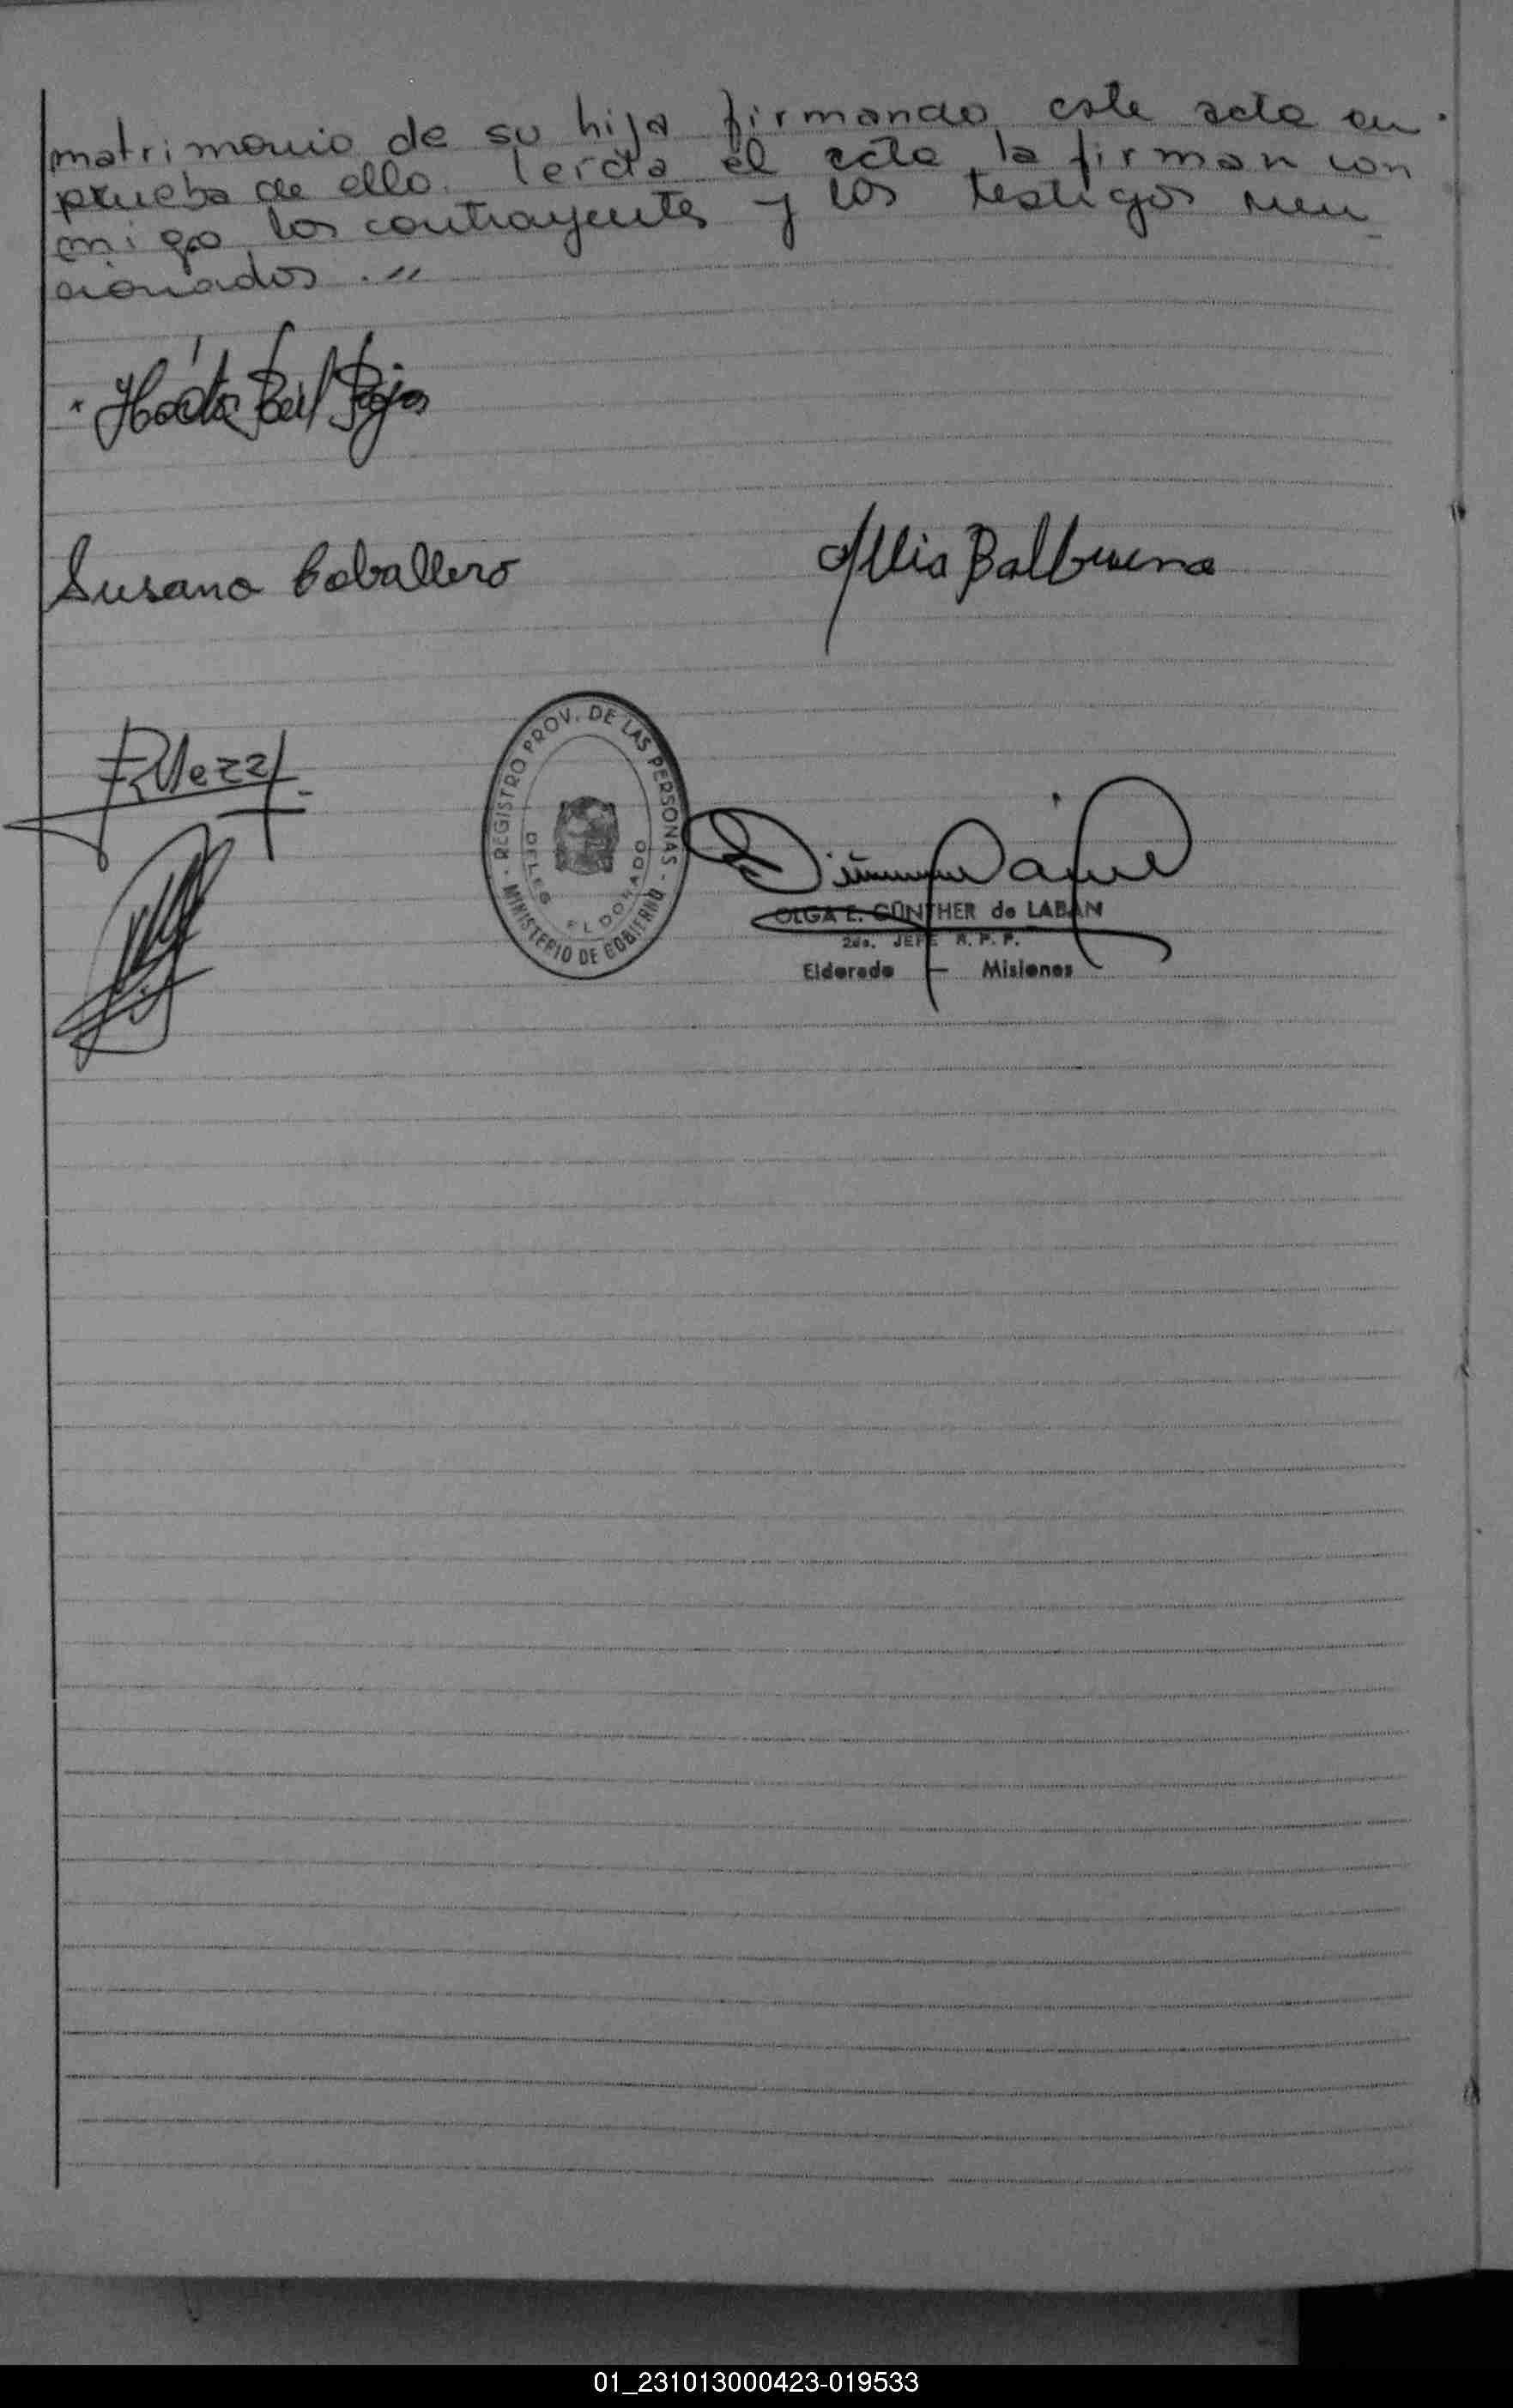 matrimonio de su hija firmando este acta en
prueba de ello. leida el acta la firman con
migo los contrayentes y los testigos men
cionados .-"
Susana Caballero
Balbuena
REGISTRO PROV. DE LAS PERSONAS - MINISTERIO DE GOBIERNO -
DELEG ELDORADO
OLGA E. GÜNTHER de LABAN
2da. JEFE R. P. P.
Eldorado - Misiones
01_231013000423-019533